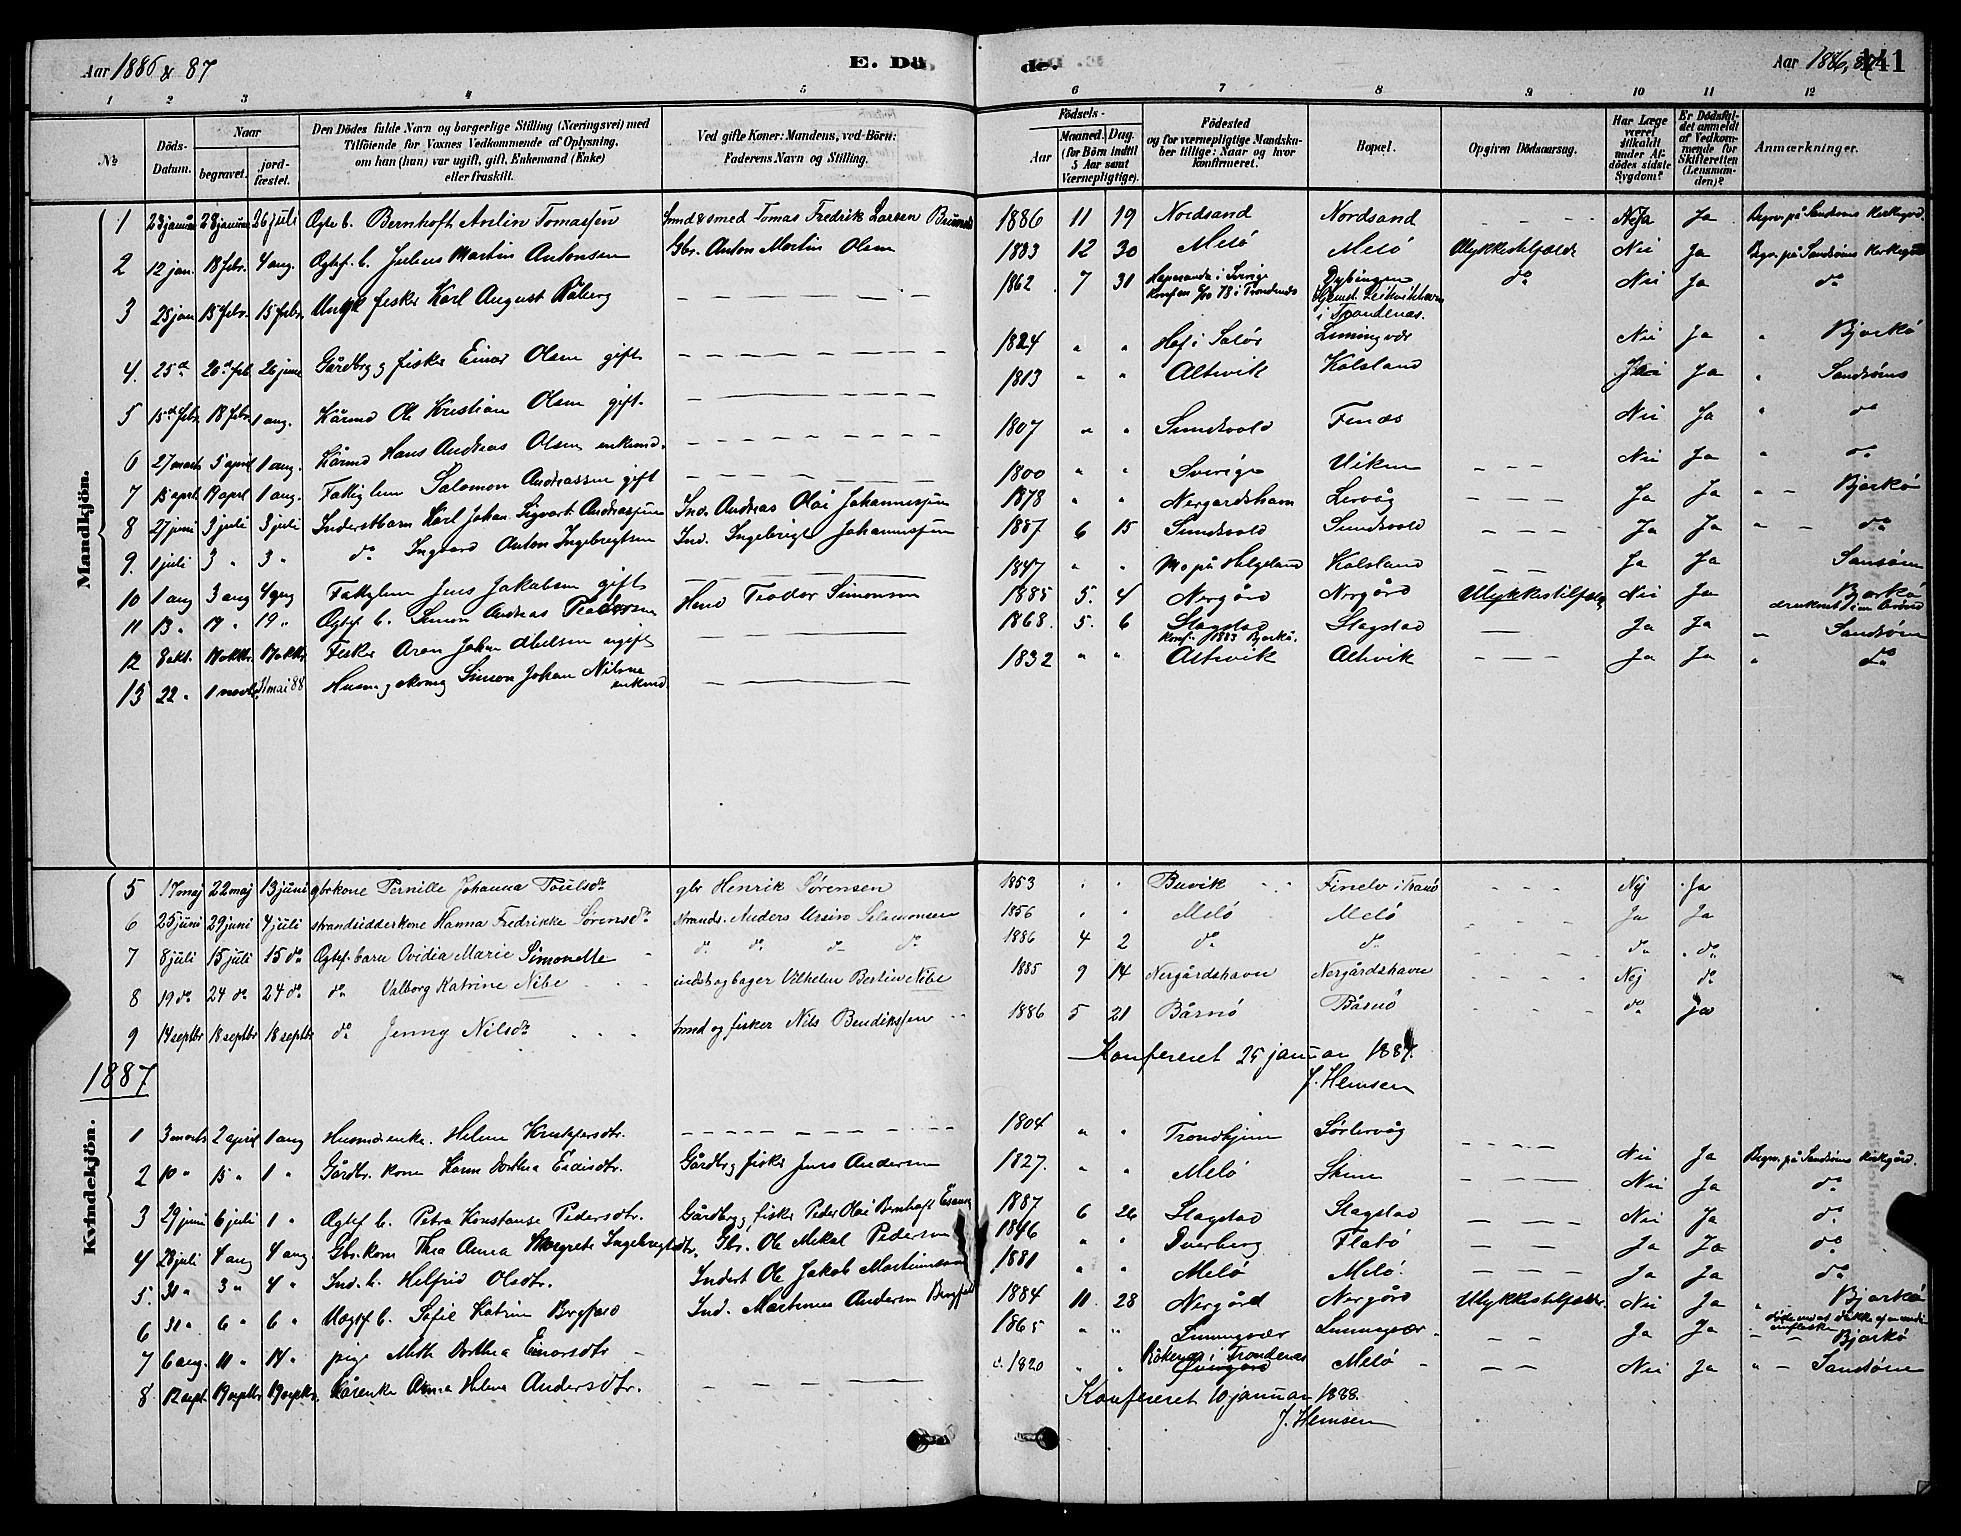 Aar 1886 & 87 E. Dö de. Aar 1886, 87 141
1 2 3 4 5 6 7 8 9 10 11 12
№
Döds-Datum.
Naar
begravet.
jordfæstet.
Den Dödes fulde Navn og borgerlige Stilling (Næringsvei) med
Tilföiende for Voxnes Vedkommende af Oplysning,
om han (hun) var ugift, gift, Enkemand (Enke)
eller fraskilt.
Ved gifte Koner: Mandens, ved Börn:
Faderens Navn og Stilling.
Födsels-
Aar
Maaned. Dag.
(for Börn indtil
5 Aar samt
Værnepligtige).
Födested
og for værnepligtige Mandsku-
ber tillige: Naar og hvor
konfirmeret.
Bopæl.
Opgiven Dödsaarsag.
Har Læge
været
tilkaldt
under Af-
dödes sidste
Sygdom?
Er Dödsfal-
det anmeldt
af Vedkom-
mende for
Skifteretten
(Lensman-
den)?
Anmærkninger.
Mandkjön.
1 23 januar 28 januar 26 juli Ægte b. Bernhoft Arelin Tomassen Smed Tomas Fredrik Larsen 1886 11 19 Nordsand Nordsand - - - Ja Begr. på Sandsøens kirkegård.
2 12 jan. 18 febr. 4 aug. Ægtef. b. Julius Martin Antonsen Gbr. Anton Martin Olsen 1883 12 30 Melö Melö Ulykkestilfælde Nei Ja Begr. på Sandsøens kirkegård
3 25 jan 15 febr. 15 febr. Ungk fisker Karl August Råberg — — — 1862 7 31 Haparanda i Sverige
konfirm 78 i Trondenæs Dybingen
i Trondenæs. do Nei Ja do
4. 25 d. 20 feb 26 juni Gårdbr og fisker Einar Olsen gift — — — 1824 " " Hof i Solör Leningvær Nei Ja " Bjarkö
5 15 d. febr. 18 febr. 1 aug. Kårmd Ole Kristian Olsen gift — — — 1813 " " Altevik Kalsland Ja " Sandsøens
6 27 marts 5 april 1 aug. Kårmd Hans Andreas Olsen enkemd. — — — 1807 " " Sundsvold Fenæs Nei Ja " do
7 15 april 17 april 1 aug. Fattiglem Salomon Andreassen gift — — — 1800 " " Sverige Viken — — — Nei Ja " do
8 27 juni 3 juli 3 juli Inderstbarn Karl Johan Sigvart Andreassen Ind. Andreas Olai Johannessen 1878 " " Nergardshavn Lervåg Ja Ja " — Bjarkö
9. 1 juli 3 " 3 " do Ingvard Anton Ingebrigtsen Ind. Ingebrigt Johannessen 1887 6 15 Sundsvold Sundsvold — — — Ja Ja " — do
10 1 aug 3 aug 4 aug Fattiglem Jens Jakobsen gift — — — 1847 " " Mo på Helgeland Kalsland — — Ja Ja Sansøen
11 13 " 17 " 19 " Ægtef b. Simon Andreas Teodorsen Hmd Teodor Simonsen 1885 5. 4 Nergård Nergård Ulykkestilfælde Nei Ja Bjarkö
druknet i en brønd
12 8 okt. 17 oktbr. 17 oktbr. Fisker Aron Johan Abelsen ugift — — — 1868. 5. 6 Slagstad
konf. 1883 Bjarkö. Slagstad — Ja Ja " Sandsøen
13 22 " 1 novbr. 11 mai 88 Husm. Simon Johan Nilsen
enkmd. — — — 1832 " " Altevik Altevik — — — Ja Ja " do
5 17 maj 22 maj 13 juni gbrkone Pernille Johanna Poulsdr gbr Henrik Sørensen 1853 " " Buvik Finelv i Tranö - - - Nej Ja
6 25 juni 29 juni 4 juli strandsidderkone Hanna Fredrikke Sørensdr strands. Anders Ursin Salamonsen 1856 " " Melö Melö Ja Ja
7 8 juli 15 juli 15 do Ægtef. barn Ovidia Marie Simonette do do do do 1886 4 2 do do do do
8 19 do 24 do 24 do do Valborg Katrine Nibe inderst og bager Vilhelm Bertin Nibe 1885 9 14 Nergårdshavn Nergårdshavn Nej do
9 14 septbr 18 septbr 18 septbr do Jenny Nilsdr Smed og fisker Nils Bendikssen 1886 5 21 Bårnö Båsnö do ja
Konfereret 25 januar 1887.
J. Hemsen
1887
Kvindekjön.
1 3 marts 2 april 1 aug Husmdsenke. Helene Kristofersdtr. — — — 1804 " " Trondhjem Sörlervåg — — — Nei Ja Begr. på Sandsøens kirkegård.
2 10 " 15 " 1 " Gårdbr. kone Karen Dorthea Eidisdtr. Gårdbr og fisker Jens Andersen 1827. " " Melö Skum — — — Nei Ja do
3 29 juni 6 juli 1 " Ægtef b. Petra Konstanse Pedersdtr. Gårdbr og fisker Peder Olai Bernhoft 1887 6 26 Slagstad Slagstad — — — Nei Ja do
4 28 juli 4 aug 4 aug. Gbr.kone Thea Anna Margrete Ingebrigtsdtr. Gbr. Ole Mikal Pedersen 1846 " " Dverberg Flatö — — Ja Ja do
5. 31 " 3 " 4 " Ind. b. Helfrid Olsdtr. Inderst Ole Jakob Martinussen 1881 " " Melö Melö. — — Ja Ja do
6 31 " 6 " 6 " Uægtef b. Sofie Katrine Bergfard Ind. Martinus Andersen 1884 11 28 Nergård Nergård Ulykkestilfælde Nei Ja " Bjarkö
7 6 aug. 11 " 14 " pige Meth Dorthea Einarsdtr — 1865 " " Leningvær Leningvær — — Ja Ja " — Bjarkö
8 12 sept. 19 septbr 19 septbr. Kårenke Anna Helene Andersdtr. — — — c. 1820 " " Rökenæs i Trondenæs Melö — — Nei Ja " — Sandsøen
Konfereret 10 januar 1888.
J. Hemsen